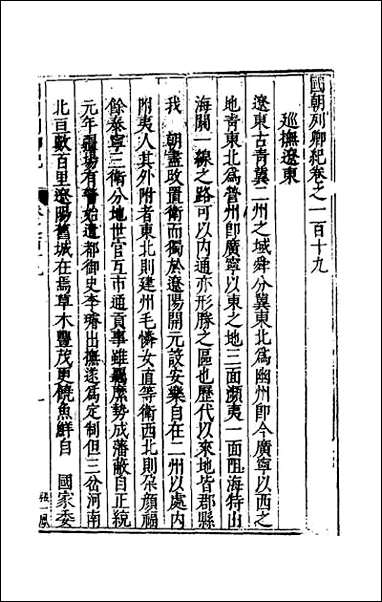 國朝列卿紀卷之一百十九
巡撫遼東
遼東古青冀二州之域舜分冀東北爲幽州卽今廣寧以西之
地青東北爲營州卽廣寧以東之地三面瀕夷一面阻海特出
海關一線之路可以內通亦形勝之區也歷代以來地皆郡縣
我　朝盡政置衛而獨於遼陽開元設安樂自在二州以處內
附夷人其外附者東北則建州毛憐女直等衛西北則朶顏福
餘泰寧三衛分地世官互市通貢事雖羈縻勢成藩蔽自正統
元年疆場有警始遣都御史李濬出撫遂爲定制但三岔河南
北亘數百里遼陽舊城在焉草木豐茂更饒魚鮮自　國家委